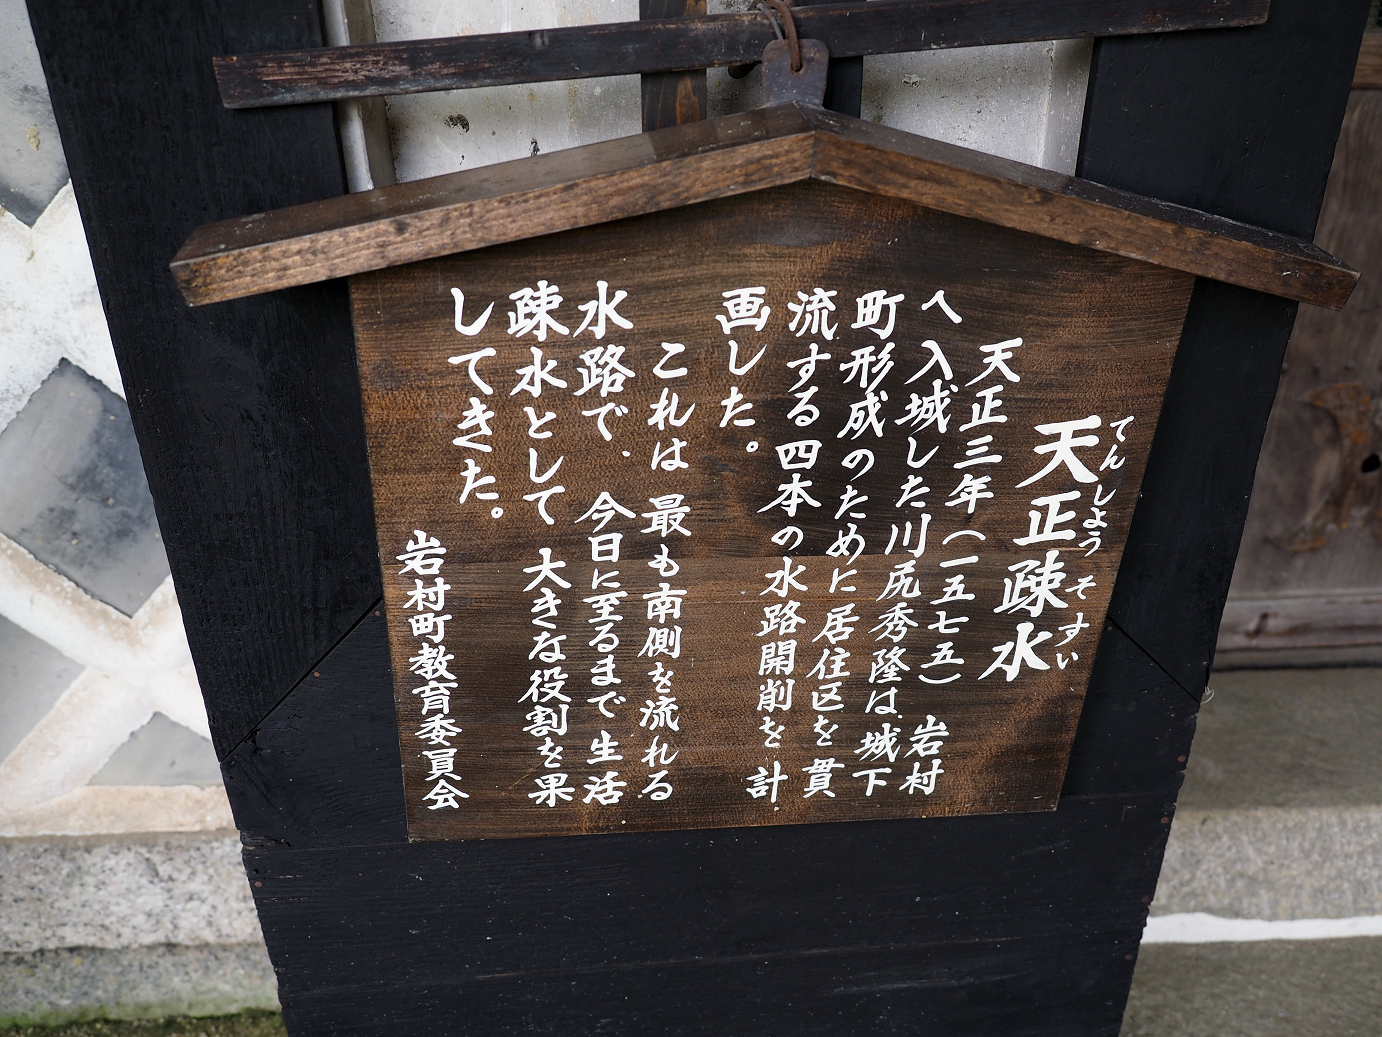 てんしょう そすい
天正疎水
天正三年（一五七五） 岩村
へ入城した川尻秀隆は城下
町形成のために居住区を貫
流する四本の水路開削を計
画した。
これは最も南側を流れる
水路で、今日に至るまで生活
疎水として大きな役割を果
してきた。
岩村町教育委員会